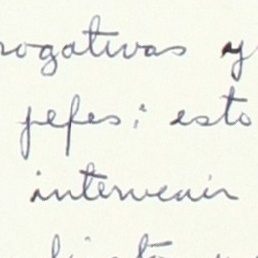 rogativas y
jefes; esto
intervenir